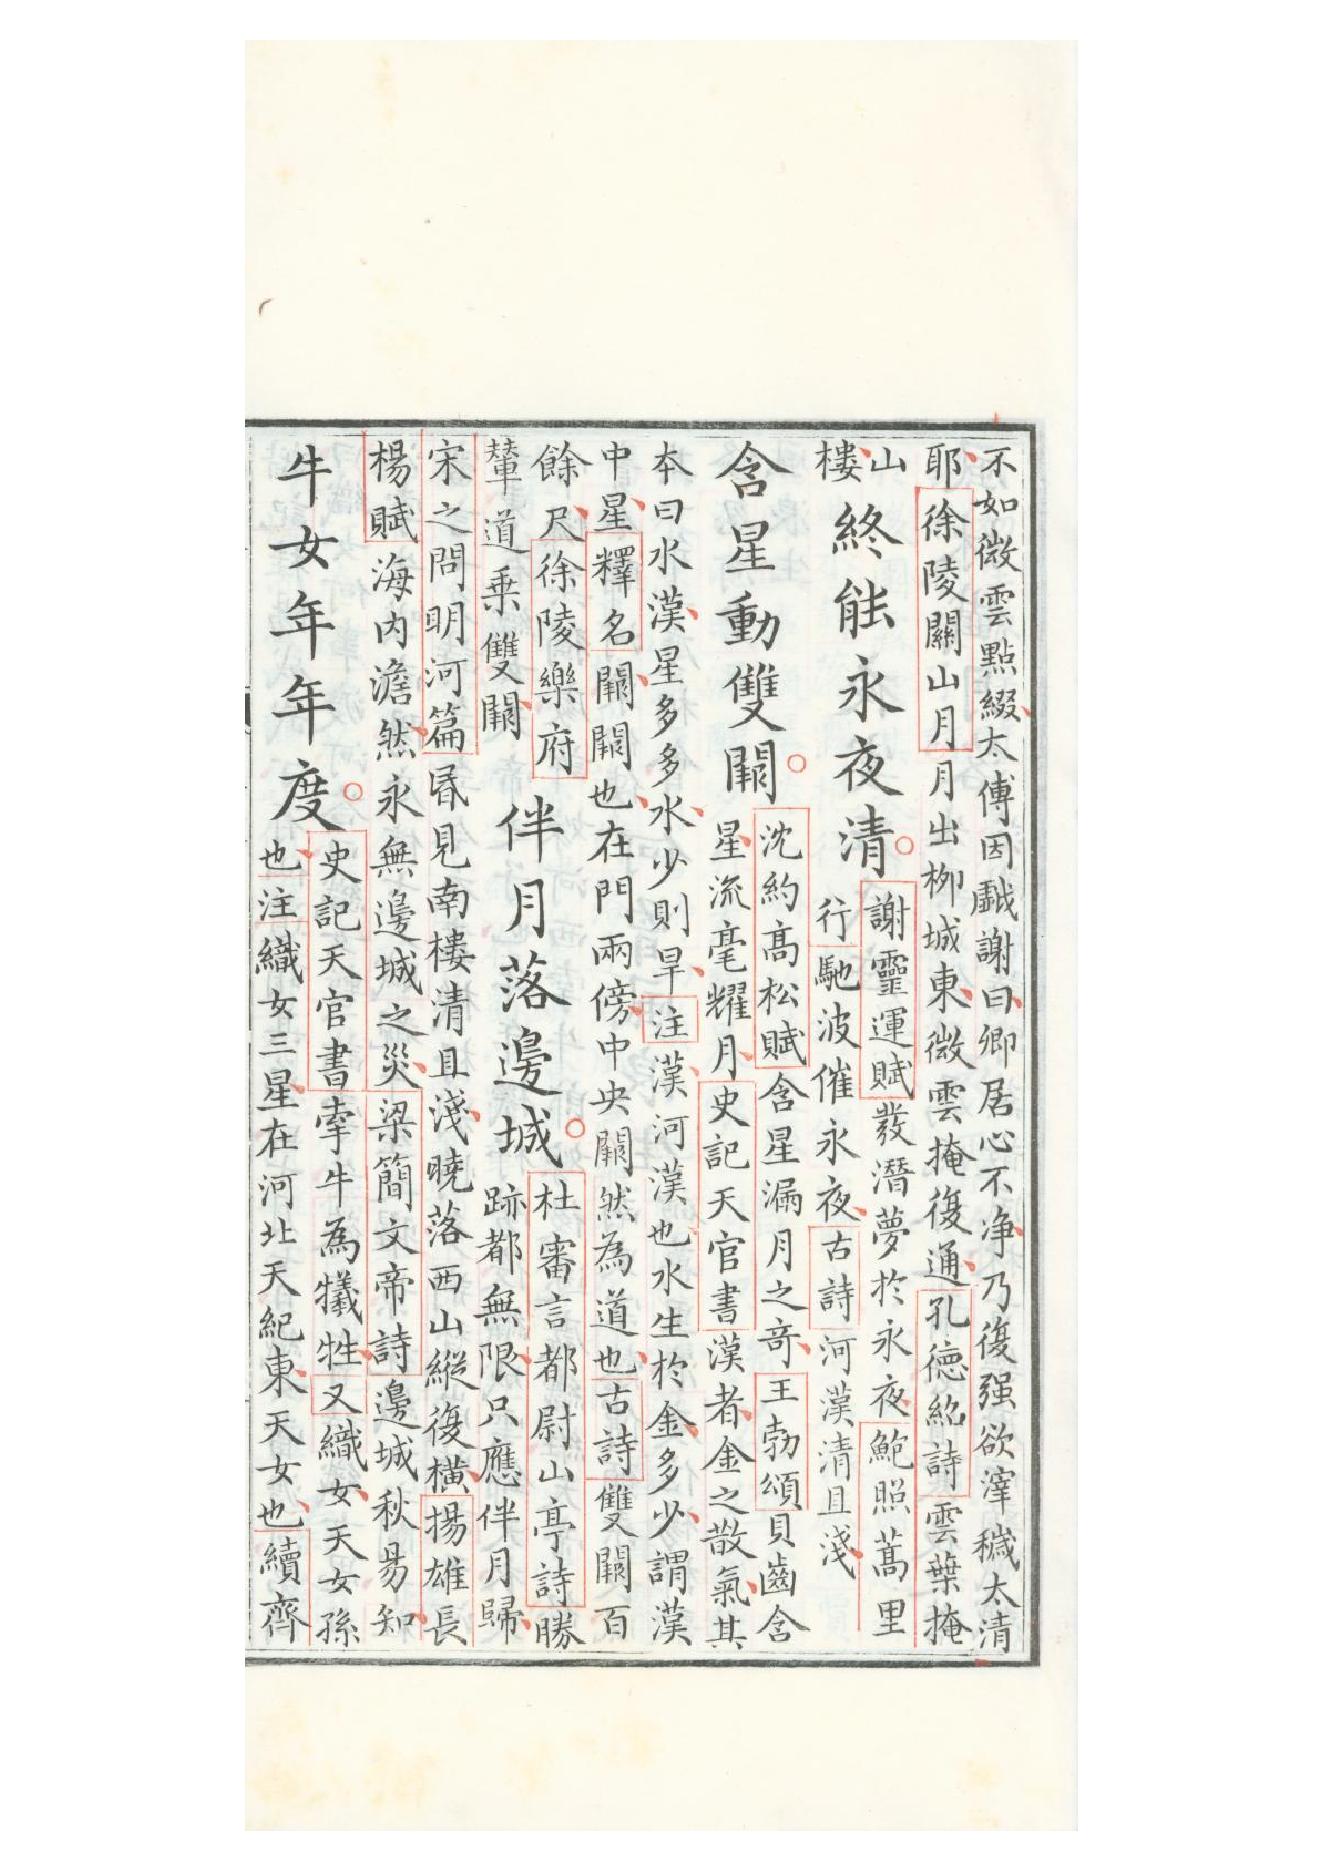 不如微雲點綴太傅因戱謝曰卿居心不净乃復强欲滓穢太清
耶徐陵關山月月出柳城東微雲掩復通孔德紹詩雲葉掩
山
樓
終能永夜清
謝靈運賦發潛夢於永夜鮑照蒿里
行馳波催永夜古詩河漢清且淺
含星動雙闕
沈約高松賦含星漏月之奇王勃頌貝齒含
星流毫耀月史記天官書漢者金之散氣其
本曰水漢星多多水少則旱注漢河漢也水生於金多少謂漢
中星釋名闕闕也在門兩傍中央闕然為道也古詩雙闕百
餘尺徐陵樂府
輦道乗雙闕
伴月落邊城
杜審言都尉山亭詩勝
跡都無限只應伴月歸
宋之問明河篇昬見南樓清且淺曉落西山縱復橫揚雄長
楊賦海内澹然永無邊城之災梁簡文帝詩邊城秋易知
牛女年年度
史記天官書牽牛為犧牲又織女天女孫
也注織女三星在河北天紀東天女也續齊